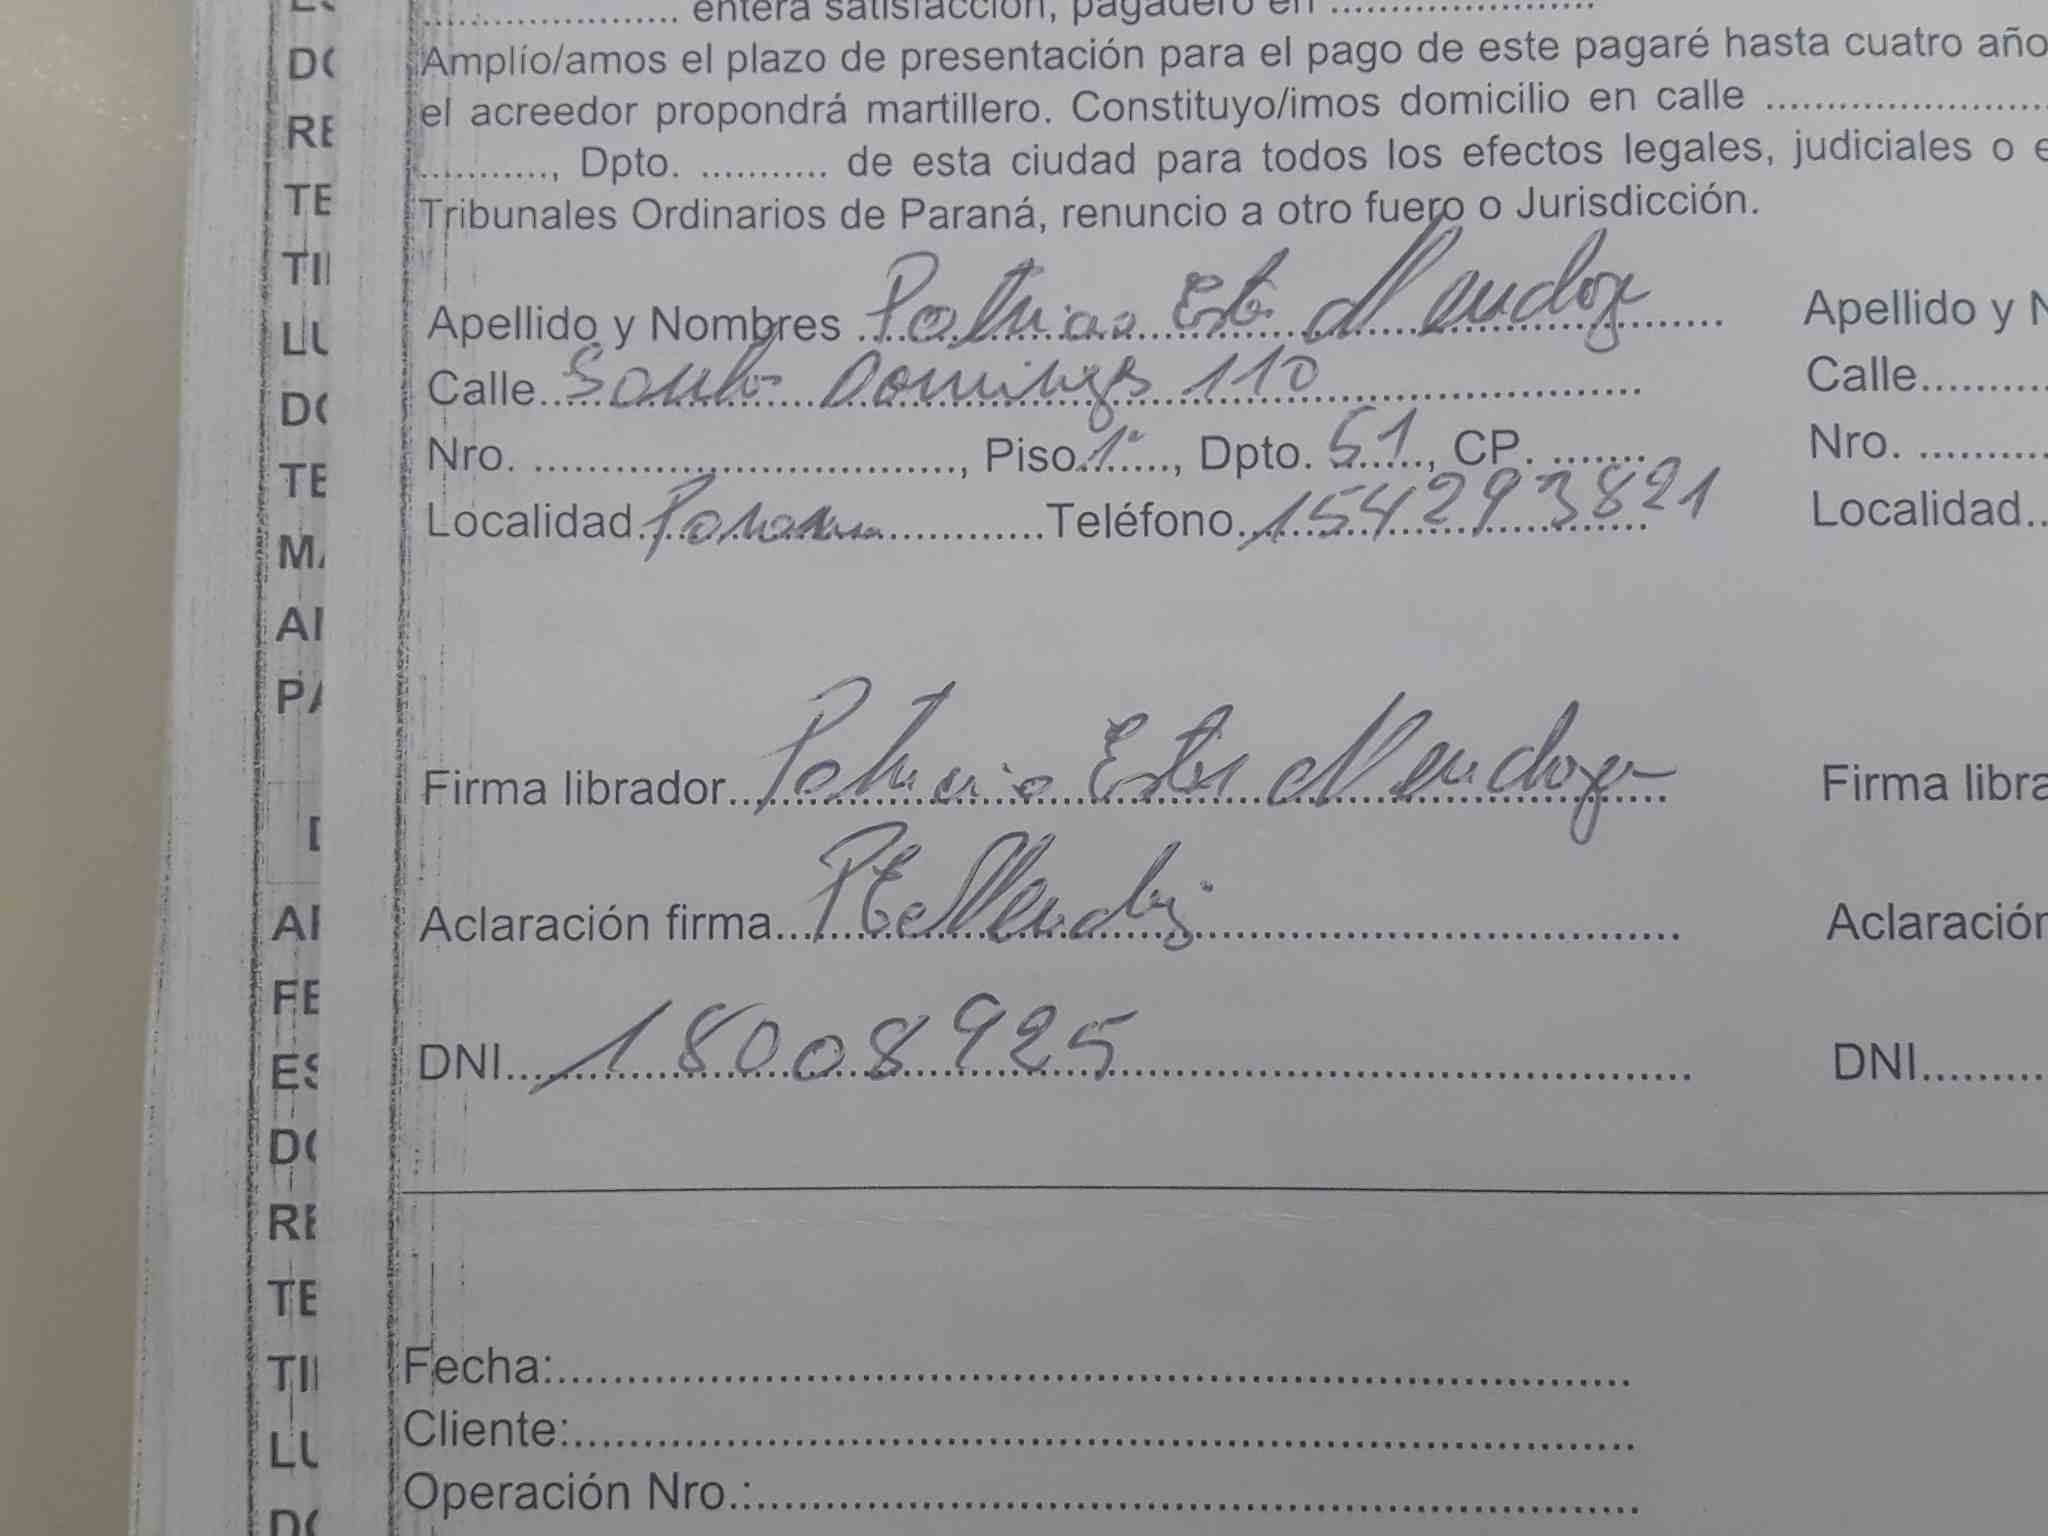 .................... entera satisfacción, pagadero en ....................
Amplío/amos el plazo de presentación para el pago de este pagaré hasta cuatro año
el acreedor propondrá martillero. Constituyo/imos domicilio en calle ....................
..........., Dpto. ........... de esta ciudad para todos los efectos legales, judiciales o e
Tribunales Ordinarios de Paraná, renuncio a otro fuero o Jurisdicción.
Apellido y Nombres Patricia Ester Mendoza
Calle Santo Domingo 110
Nro. ...................., Piso 1°, Dpto. 51, CP. .......
Localidad Parana Teléfono 154293821
Firma librador Patricia Ester Mendoza
Aclaración firma PEMendoza
DNI 18008925
Fecha:
Cliente:
Operación Nro.:
Apellido y N
Calle
Nro.
Localidad
Firma libra
Aclaración
DNI
DO
RE
TE
TI
LU
DO
TE
MA
AP
PA
D
AP
FE
ES
DO
RE
TE
TI
LU
DO